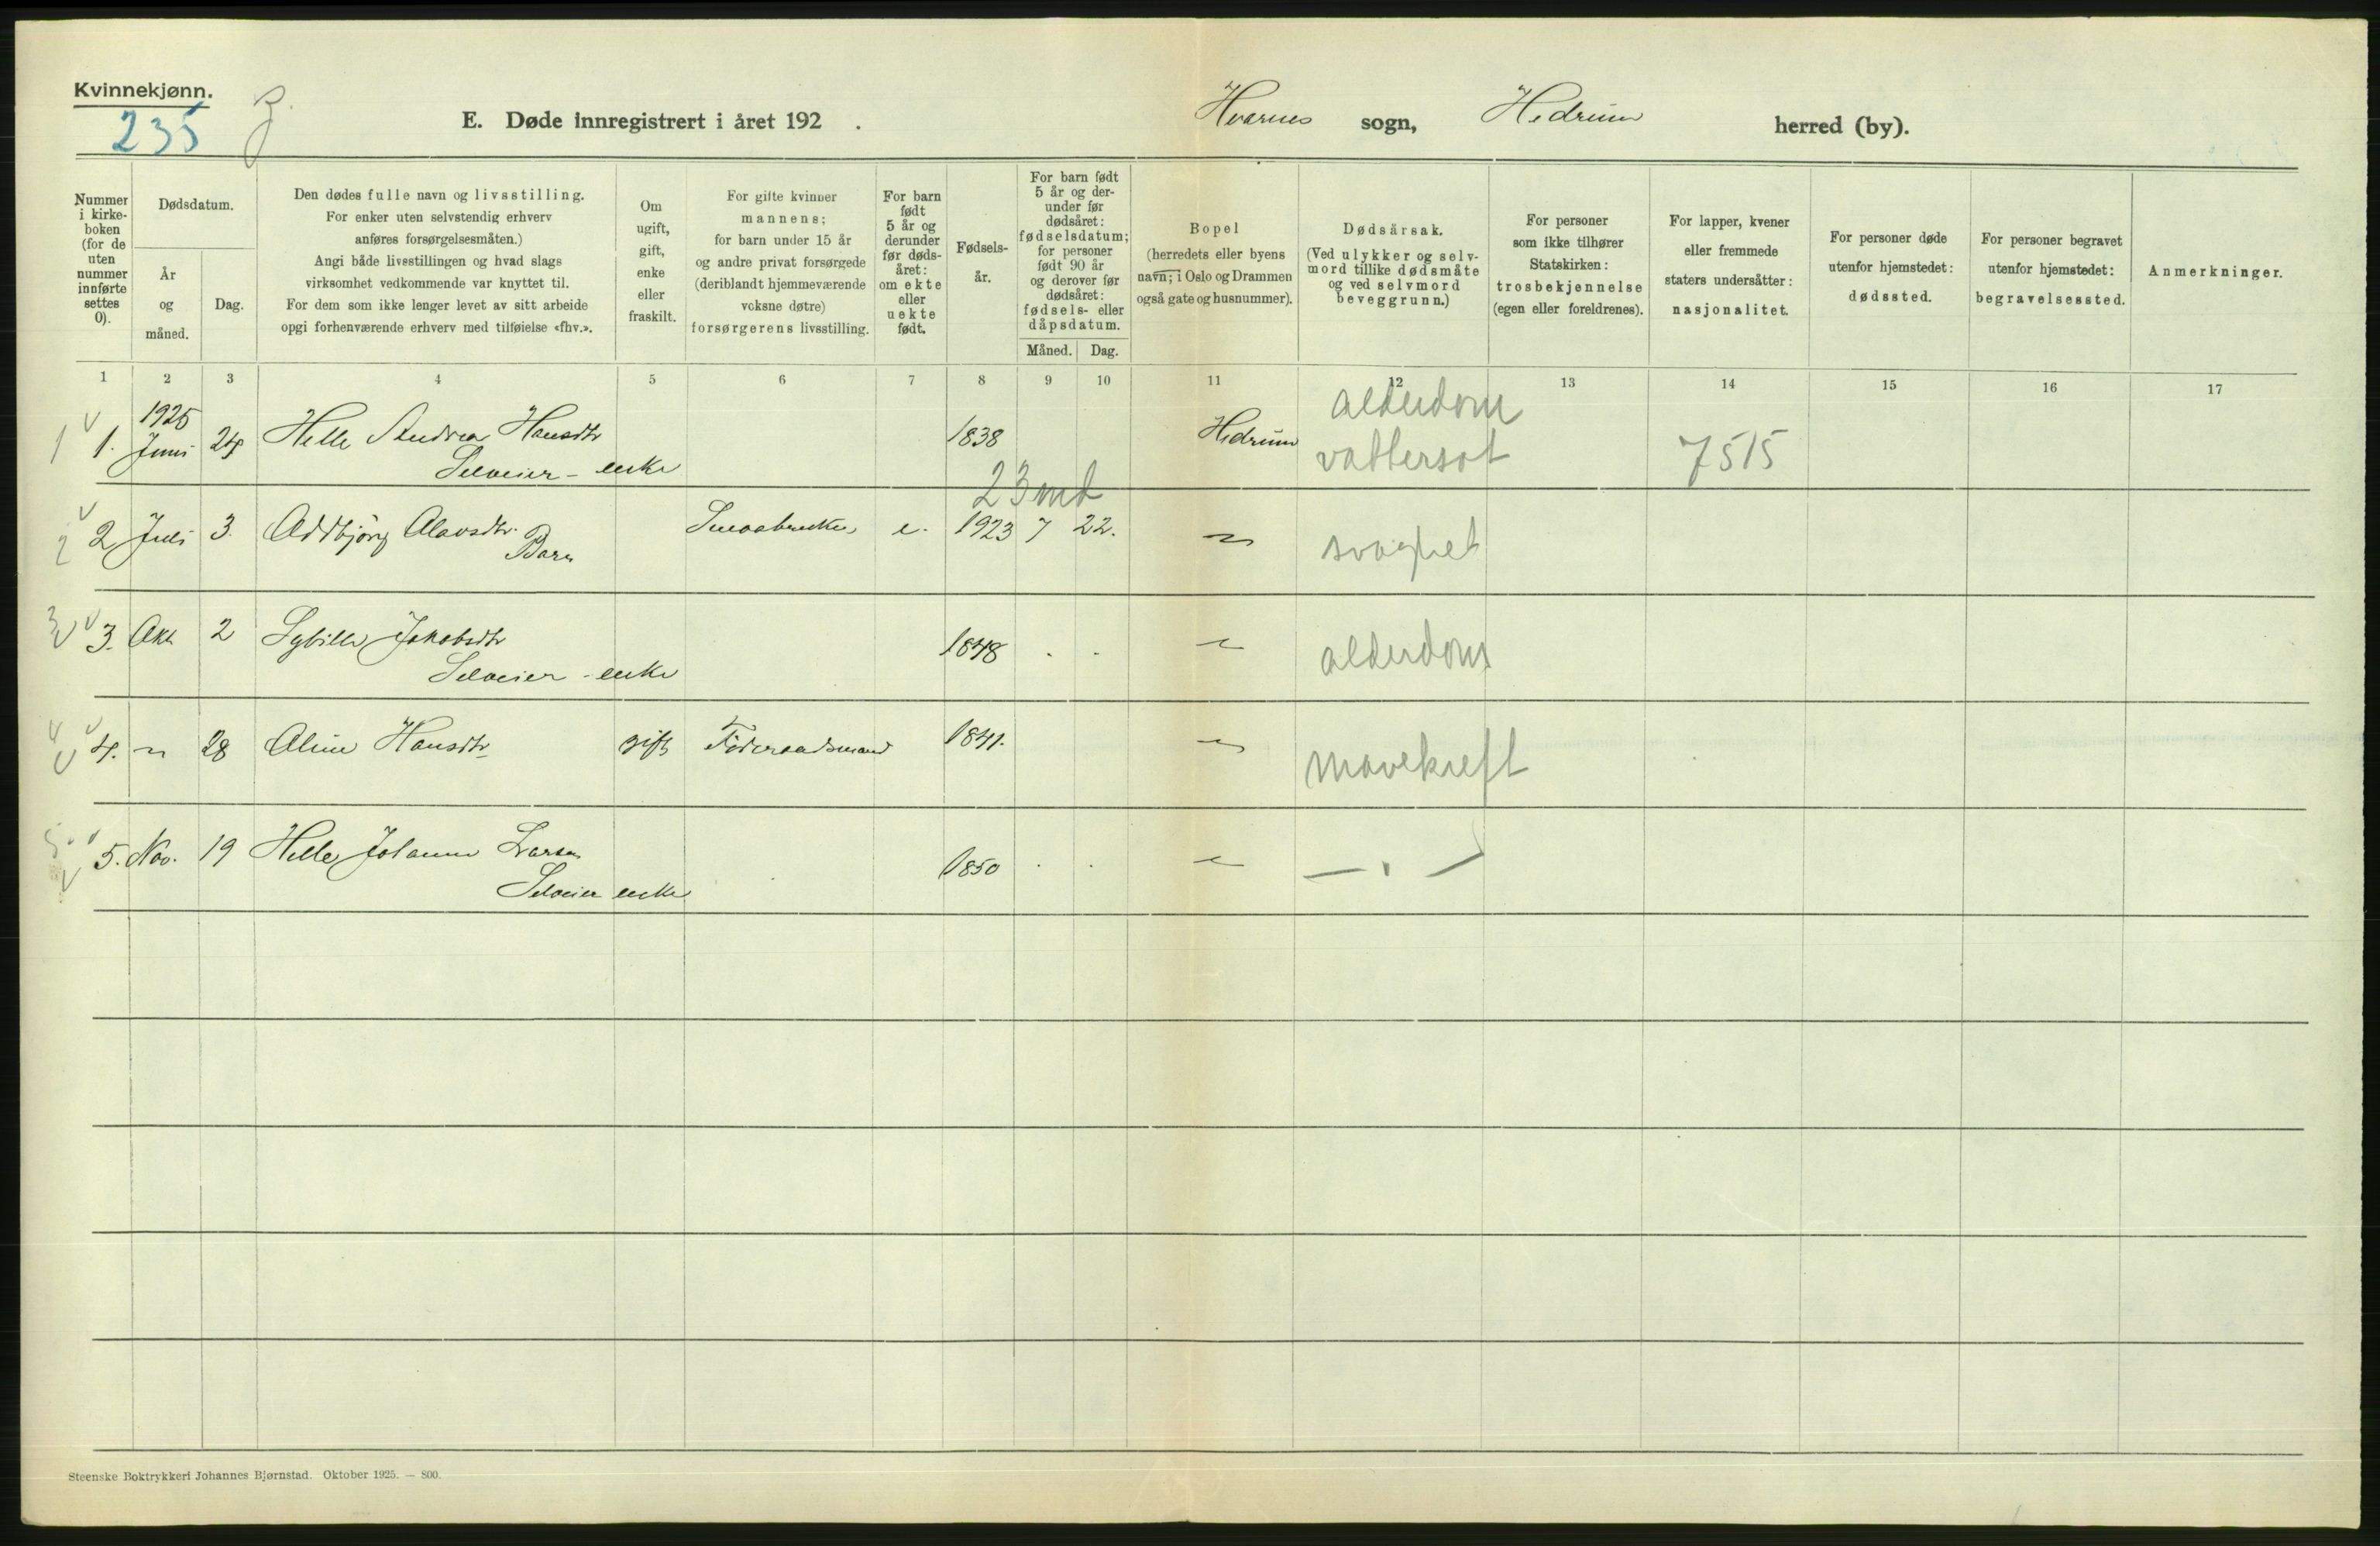 Kvinnekjønn.
235
E. Døde innregistrert i året 192 .
Hvarnes sogn, Hedrum herred (by).
Nummer i kirke- boken (for de uten nummer innførte settes 0).
Dødsdatum.
År og måned.
Dag.
Den dødes fulle navn og livsstilling.
For enker uten selvstendig erhverv
anføres forsørgelsesmåten.)
Angi både livsstillingen og hvad slags
virksomhet vedkommende var knyttet til.
For dem som ikke lenger levet av sitt arbeide
opgi forhenværende erhverv med tilføielse «fhv.».
Om ugift, gift, enke eller fraskilt.
For gifte kvinner
mannens;
for barn under 15 år
og andre privat forsørgede
(deriblandt hjemmeværende
voksne døtre)
forsørgerens livsstilling.
For barn født 5 år og derunder før døds- året: om ekte eller uekte født.
Fødsels- år.
For barn født
5 år og der-
under før
dødsåret:
fødselsdatum;
for personer
født 90 år
og derover før
dødsåret:
fødsels- eller
dåpsdatum.
Måned. Dag.
Bopel
(herredets eller byens
navn; i Oslo og Drammen
også gate og husnummer).
Dødsårsak.
(Ved ulykker og selv-
mord tillike dødsmåte
og ved selvmord
beveggrunn.)
For personer
som ikke tilhører
Statskirken:
trosbekjennelse
(egen eller foreldrenes).
For lapper, kvener
eller fremmede
staters undersåtter:
nasjonalitet.
For personer døde
utenfor hjemstedet:
dødssted.
For personer begravet
utenfor hjemstedet:
begravelsessted.
Anmerkninger.
1 2 3 4 5 6 7 8 9 10 11 12 13 14 15 16 17
1925 alderdom
1 1. Juni 24 Helle Andrea Hansdtr 1838 Hedrum vattersot 7515
Selveier - enke
23 md
2 2 Juli 3. Oddbjørg Olavsdtr. Smaabruker e. 1923 7 22. " svaghet
Barn
3 3. Okt 2 Sybille Jakobsdtr 1848 . . " alderdom
Selveier - enke
4 4. " 28 Aline Hansdtr gift Føderaadsmand 1841. " mavekreft
5 5. Nov. 19 Helle Johanne Larsen 1850 . . " — . —
Selveier enke
Steenske Boktrykkeri Johannes Bjørnstad. Oktober 1925. — 800.